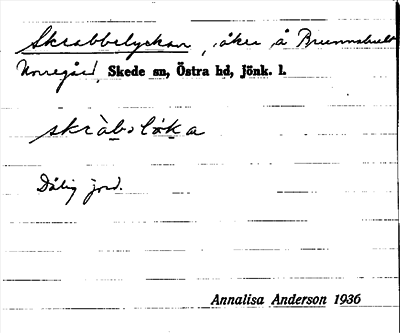 Skrabbelyckan, åker å Brunnshult
Norregård, Skede sn, Östra hd, Jönk. l.
skràbolók a
Dålig jord.
Annalisa Anderson 1936